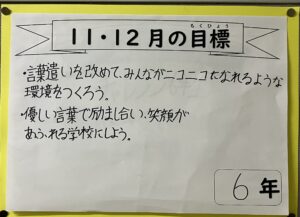 もくひょう
11・12月の目標
・言葉遣いを改めて、みんながニコニコになれるような
環境をつくろう。
・優しい言葉で励まし合い、笑顔が
あふれる学校にしよう。
6年